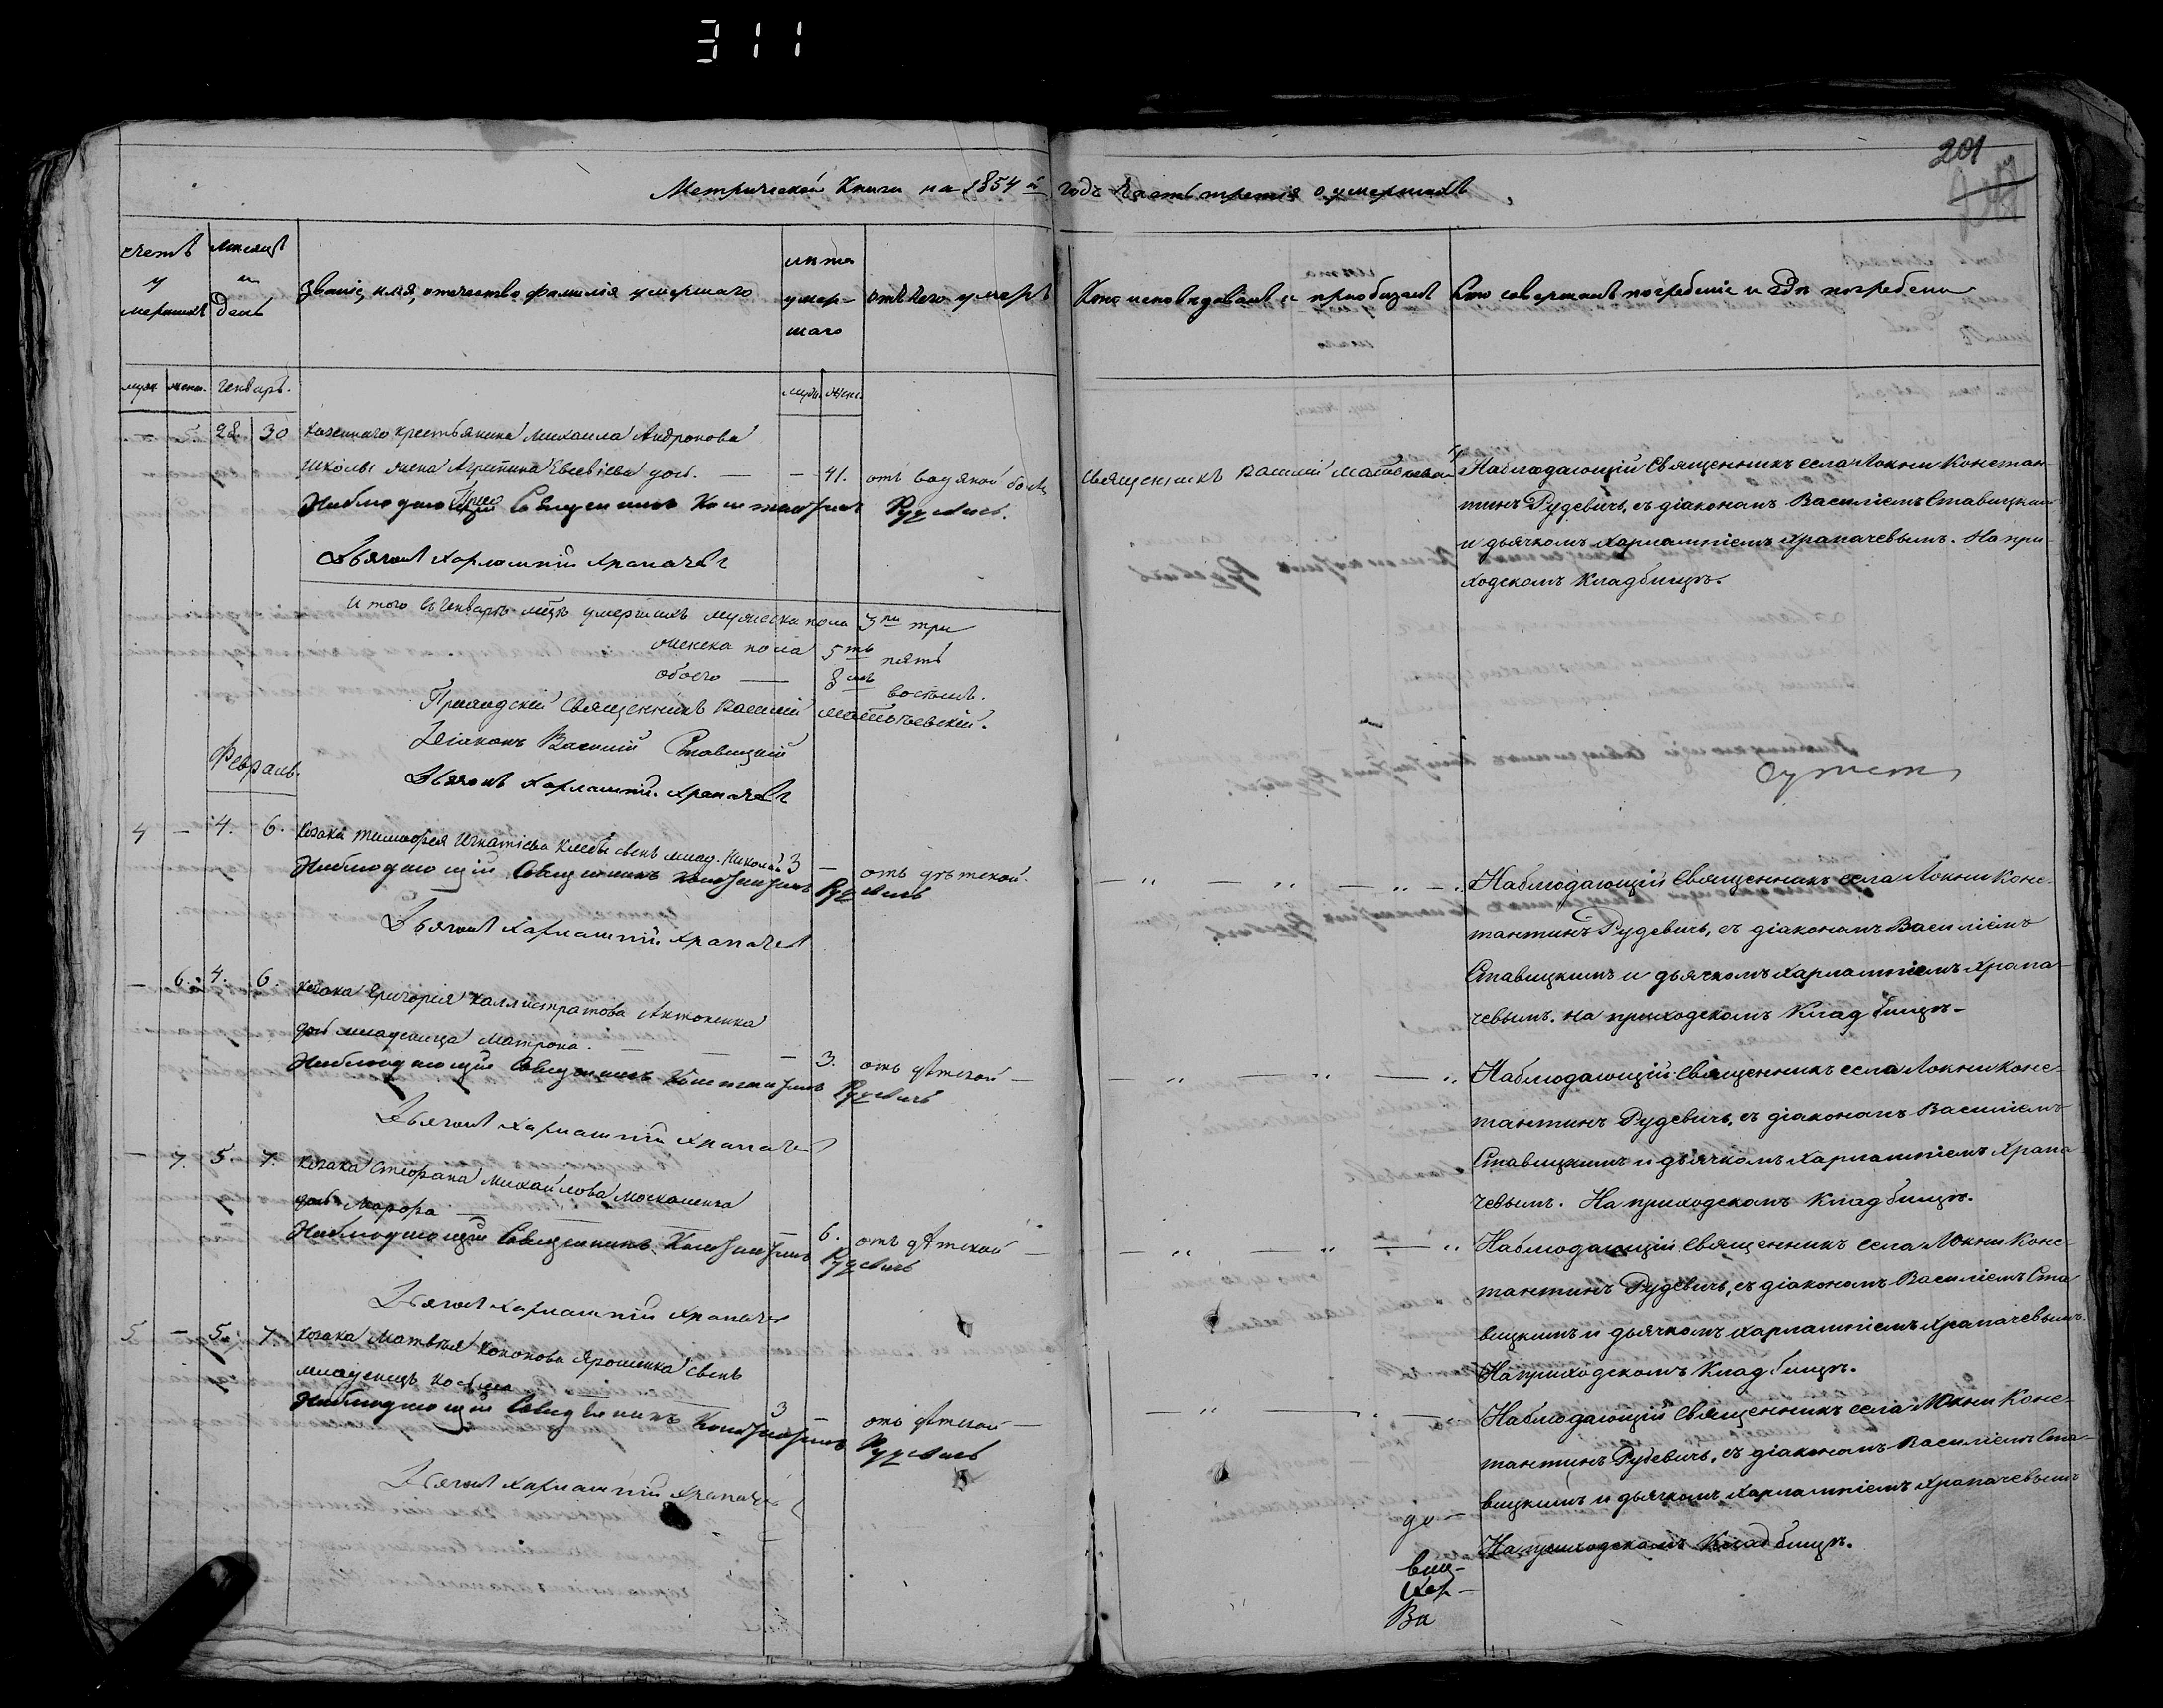 311
201
Метрической Книги на 1854й годъ часть третія о умершихъ
счетъ умершихъ
мѣсяцъ и день
званіе, имя, отчество фамилія умершаго
лѣта умершаго
отъ чего умеръ
Кто исповѣдовалъ и пріобщалъ
Кто совершалъ погребеніе и гдѣ погребены
муж. жен. Генварь. муж. жен.
5. 28 30 казеннаго крестьянина Михаила Андронова
школы жена Агрипина Евсевіева дочь. — — 41. отъ водяной болѣз
Священникъ Василій
Наблюдающій Священникъ Константинъ Рудевичъ.
Дьячокъ Харлампій Храпачевъ
Наблюдающій Священникъ села Локни Констан-
тинъ Рудевичь, съ діакономъ Василіемъ Ставицкимъ
и дьячкомъ Харлампіемъ Храпачевымъ. На при-
ходскомъ Кладбищѣ.
Итого въ Генварѣ мцѣ умершихъ мужеска пола 3ри три
женска пола 5ть пять
обоего — 8мъ восемь.
Приходскій Священникъ Василій
Діаконъ Василій Ставицкій
Дьячокъ Харлампій Храпачевъ
Февраль.
4 — 4. 6. козака Тимофея Игнатіева сынъ млад. Николай 3 — отъ дѣтской.
Наблюдающій Священникъ Константинъ Рудевичъ
Дьячокъ Харлампій Храпачевъ
Наблюдающій Священникъ села Локни Конс-
тантинъ Рудевичь, съ діакономъ Василіемъ
Ставицкимъ и дьячкомъ Харлампіемъ Храпа-
чевымъ. на приходскомъ Кладбищѣ.
— 6. 4. 6. козака Григорія Каллистратова Антоненка
дочь младеница Матрона. — — — 3. отъ дѣтской —
Наблюдающій Священникъ Константинъ Рудевичъ
Дьячокъ Харлампій Храпачевъ
Наблюдающій Священникъ села Локни Конс-
тантинъ Рудевичь, съ діакономъ Василіемъ
Ставицкимъ и дьячкомъ Харлампіемъ Храпа
чевымъ. На приходскомъ Кладбищѣ.
— 7. 5. 7. козака Стефана Михайлова Москаленка
дочь Марфа — — — 6. отъ дѣтской —
Наблюдающій Священникъ Константинъ Рудевичъ
Дьячокъ Харлампій Храпачевъ
Наблюдающій Священникъ села Локни Конс-
тантинъ Рудевичь, съ діакономъ Василіемъ Ста
вицкимъ и дьячкомъ Харлампіемъ Храпачевымъ.
На приходскомъ Кладбищѣ.
5 — 5. 7. козака Матвѣя Кононова Ярошенка сынъ
младенецъ Косьма — 3 — отъ дѣтской —
Наблюдающій Священникъ Константинъ Рудевичъ
Дьячокъ Харлампій Храпачевъ
Наблюдающій Священникъ села Локни Конс-
тантинъ Рудевичь, съ діакономъ Василіемъ Ста-
вицкимъ и дьячкомъ Харлампіемъ Храпачевымъ
На приходскомъ Кладбищѣ.